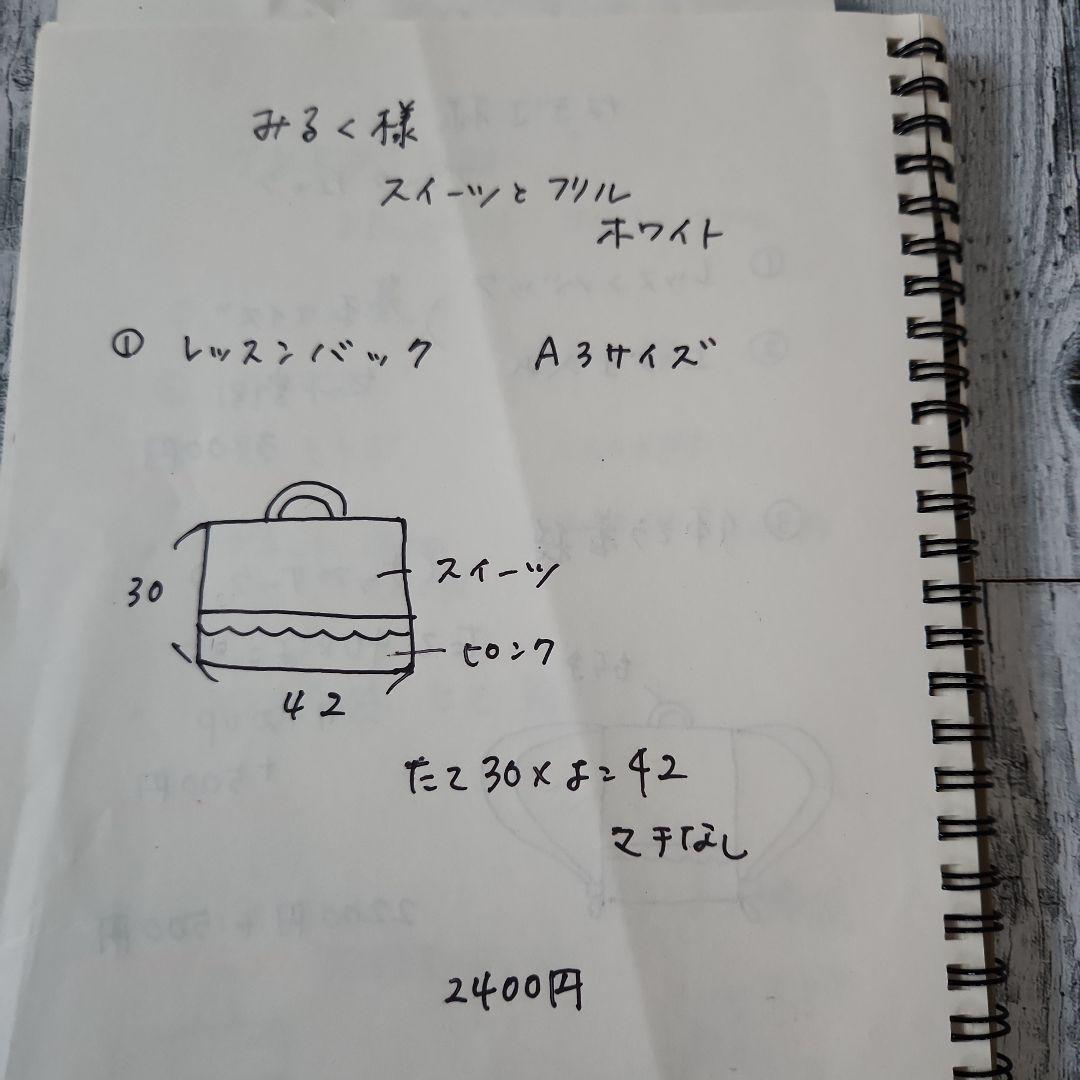 みるく様
スイーツとフリル
ホワイト
① レッスンバック A3サイズ
30
スイーツ
ピンク
42
たて30×よこ42
マチなし
2400円